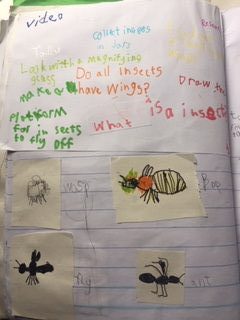 video
collect insects
in Jars
Look with a magnifying
glass
Do all insects
have wings?
make a
platform
for insects
to fly off
Draw the
What
is a insect
wasp
Bee
fly
ant